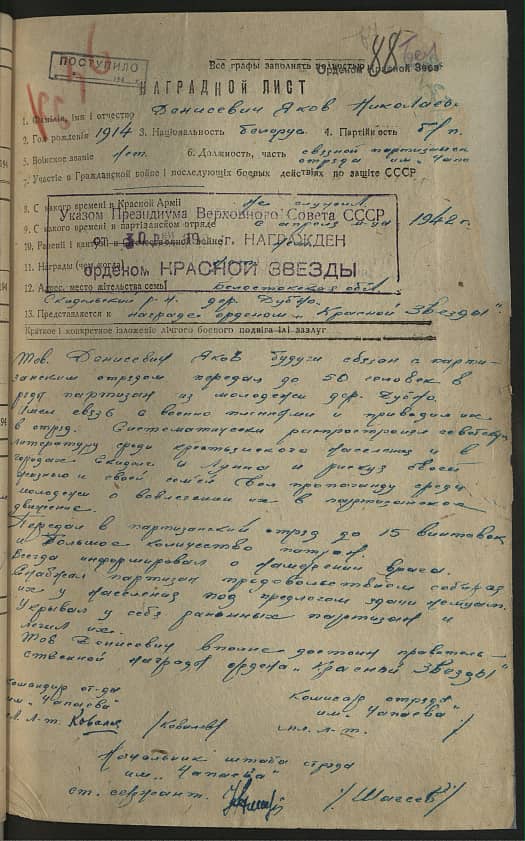 ПОСТУПИЛО
88
Все графы заполнять полностью
Орденом Красной Звез
НАГРАДНОЙ ЛИСТ
1. Фамилия, имя и отчество Донисевич Яков Николаев.
2. Год рождения 1914 3. Национальность белорус 4. Партийность б/п.
5. Воинское звание 6. Должность, часть связной партизанск
отряда им. Чапа
7. Участие в Гражданской войне и последующих боевых действиях по защите СССР
8. С какого времени в Красной Армии Не служил
9. С какого времени в партизанском отряде с апреля м-ца 1942 г.
10. Ранен
11. Награды (чем, когда)
Указом Президиума Верховного Совета СССР
от 30 19 г. НАГРАЖДЕН
орденом КРАСНОЙ ЗВЕЗДЫ
12. Адрес, место жительства семьи Белостокская обл.
Скидельский р-н. дер. Бубно.
13. Представляется к награде орденом „Красной Звезды"
Краткое и конкретное изложение личного боевого подвига или заслуг
Тов. Донисевич Яков будучи связан с парти-
занским отрядом передал до 50 человек в
ряды партизан из молодежи дер. Бубно.
Имел связь с военно пленными и приводил их
в отряд. Систематически распространял советскую
литературу среди крестьянского населения и в
городах Скидель и Лунна и рискуя своей
жизнью и своей семьей вел пропоганду среди
молодежи о вовлечении их в партизанское
движение.
Передал в партизанский отряд до 15 винтовок
и большое количество патрон.
Всегда информировал о намерении врага.
Снабжал партизан продовольствием собирая
их у населения под предлогом сдачи немцам.
Укрывал у себя раненных партизан и
лечил их.
Тов Донисевич вполне достоин правитель-
ственной награды ордена „Красной Звезды"
Командир от-да
им. „Чапаева"
Комиссар отряда
им. „Чапаева"
мл. л-т. Ковалев /Ковалев/
мл. л-т.
Начальник штаба отряда
им. „Чапаева"
ст. сержант.